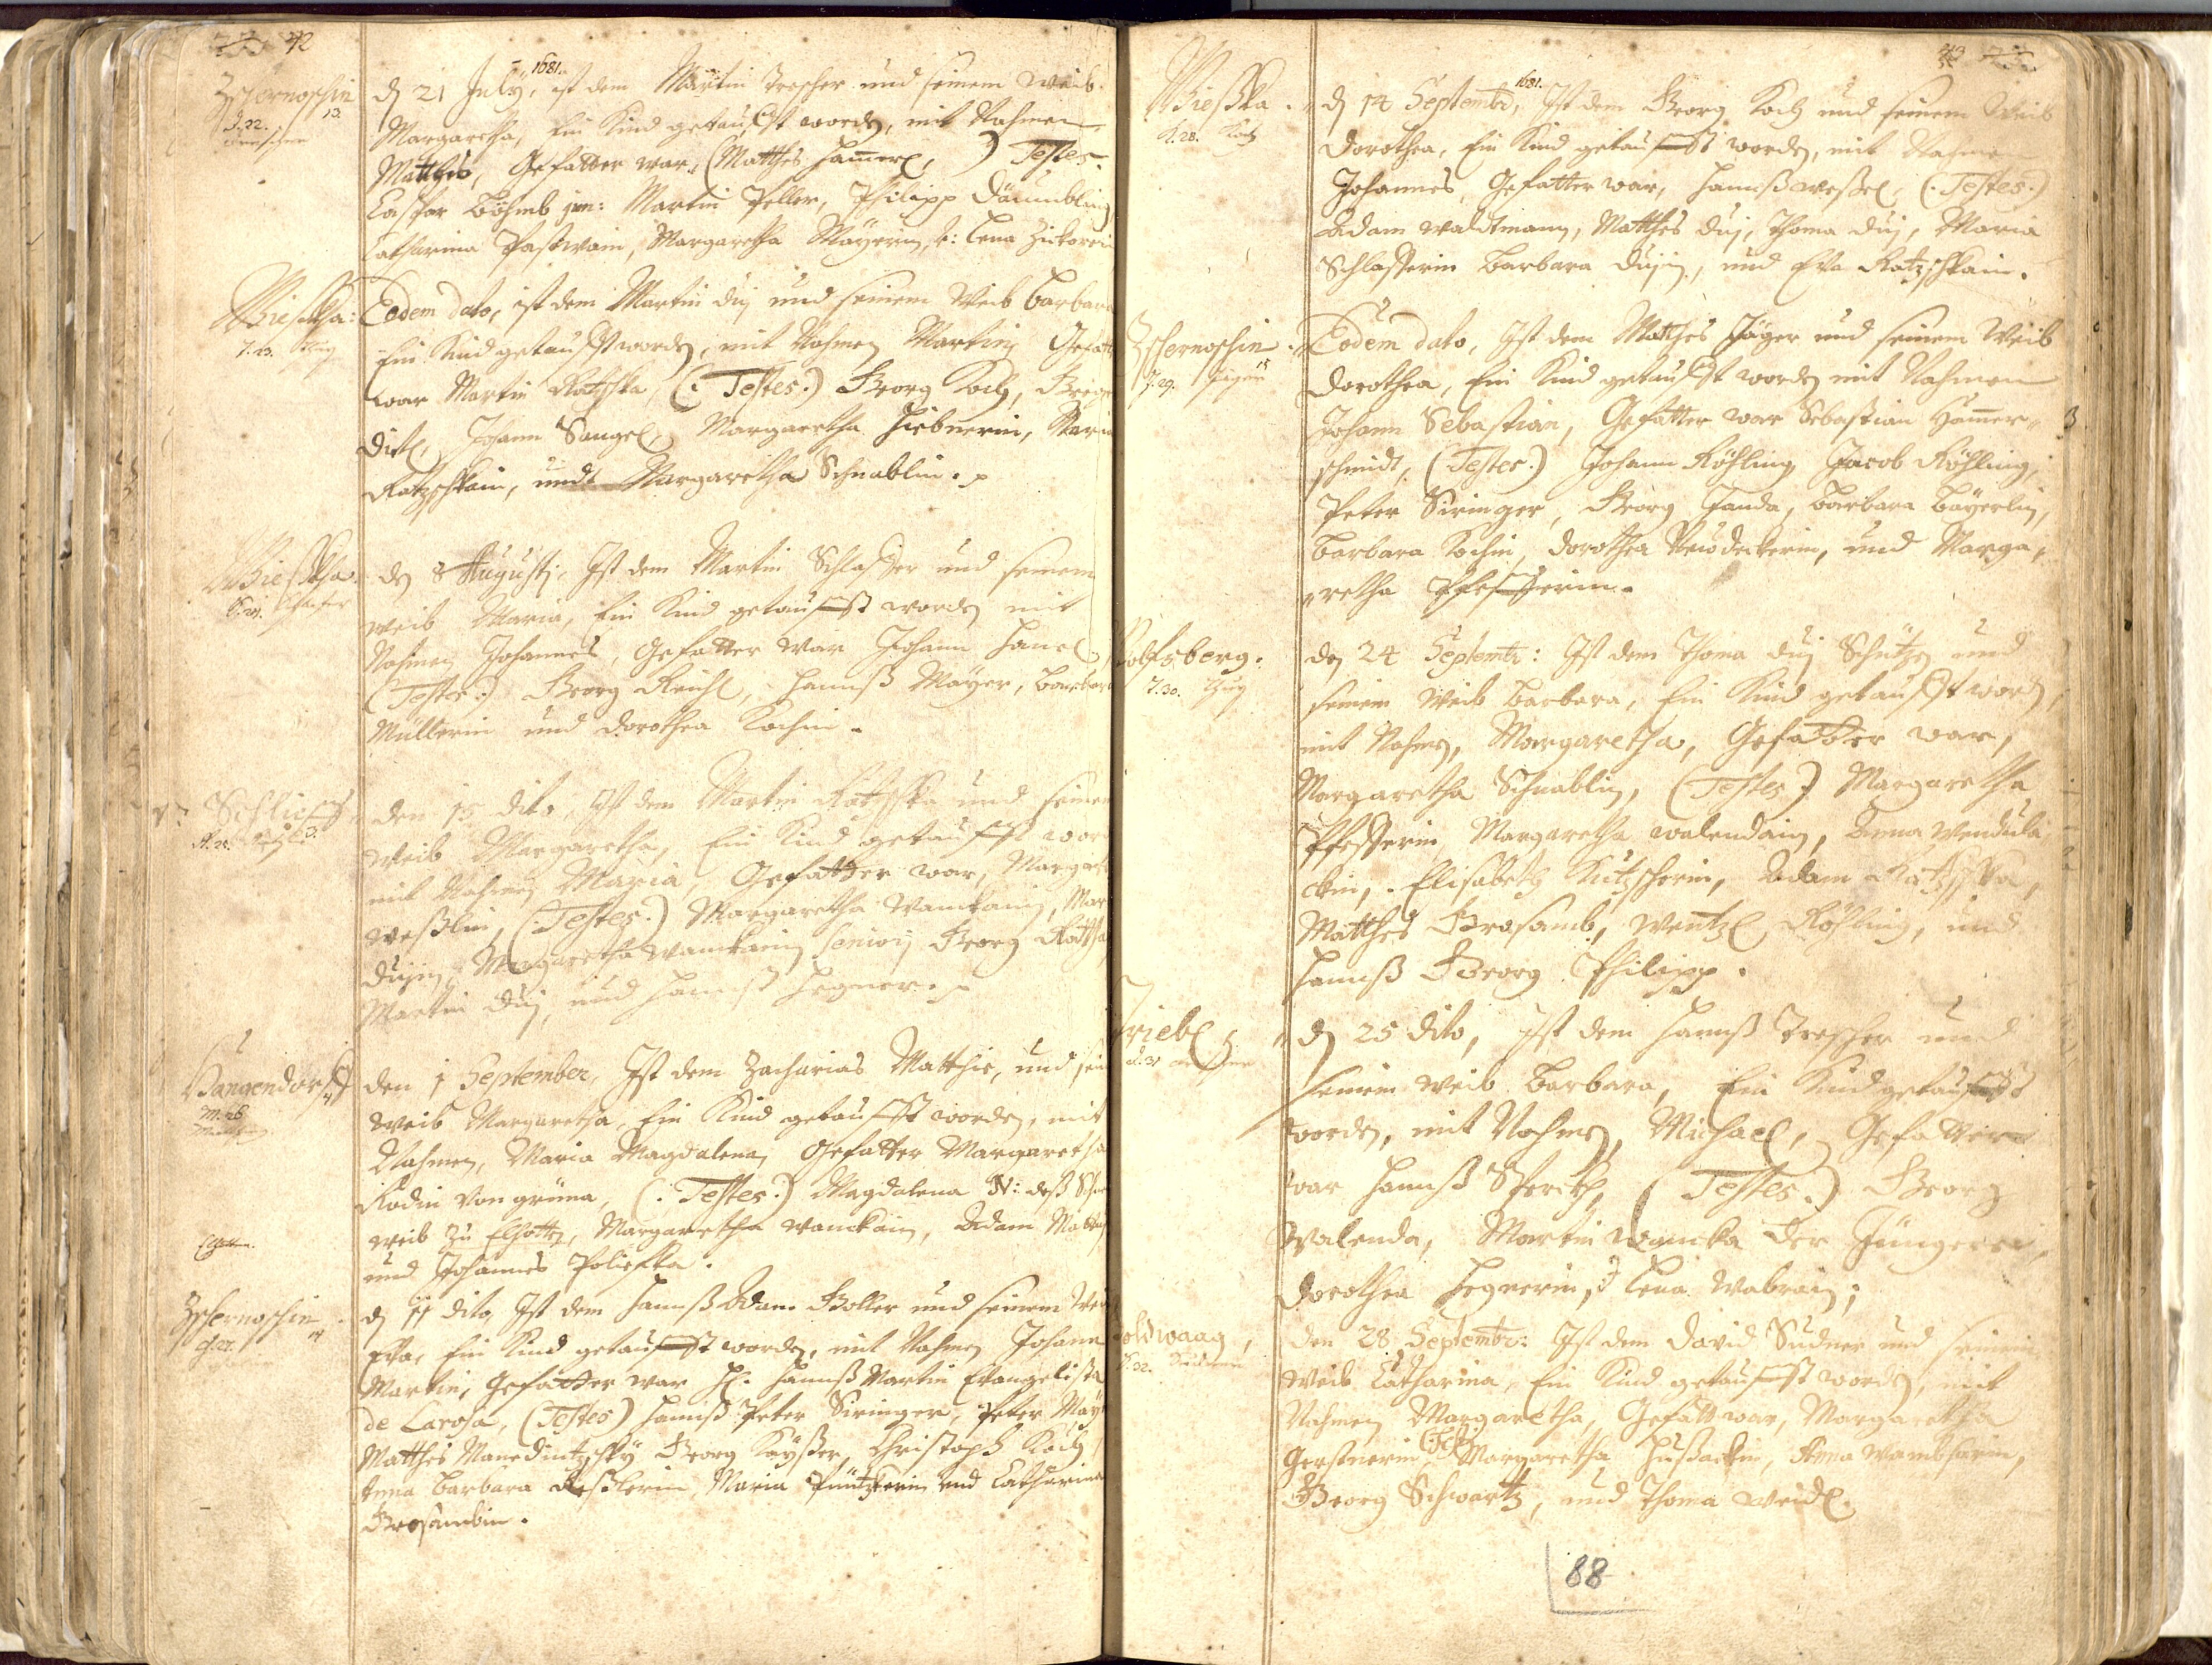 42
1681.
Zschernoschin
13.
d. 22.
Drescher
dẏ 21 Julÿ, ist dem Martin Trescher und seinem Weib
Margaretha, Ein Kind getaufft worden, mit Nahmen
Matthes, Gefatter war, (Matthes Hamerl,) Testes.
Caspar Böhmb jun: Martin Peller, Philipp Däumbling
Catharina Pastwain, Margaretha Mayerin, Lena Zickorin
Wieschka:
7. 23.
Eodem dato, ist dem Martin Duj und seinem Weib Barbara
Ein Kind getaufft worden, mit Nahmen Martiny Gefatter
war Martin Ratschka, (:Testes.) Georg Koch,
Dietl, Johann Sangel, Margaretha Hiebnerin, Maria
Ratzschkain, undt Margaretha Schnablin.
Wieschka.
den 8 Augusti, Ist dem Martin Schlasser und seinem
weib Maria, Ein Kind getaufft worden mit
Nahmen Johannes, Gefatter war Johann Hanel,
(Testes.) Georg Reichl, Hannß Mayer, Barbara
Müllerin und Dorothea Kochin.
Schlieff
den 15 dito, Ist dem Martin Ratschka und seinem
Weib Margaretha, Ein Kind getaufft word
mit Nahmen Maria, Gefatter war, Margareth
weßlin, (.Testes.) Margaretha Wanckain, Mar
Dujin, Margaretha Wanckain senior, Georg Ratschka
Martin Duj, und Hannß Hegner.
Wangendorff
M. 26.
den 1 September, Ist dem Zacharias Matthis, und sein
Weib Margaretha, Ein Kind getaufft worden, mit
Nahmen, Maria Magdalena, Gefatter Margaretha
Rodin von grüna, (.Testes.) Magdalena N: deß
weib Zu Elhotten, Margaretha Wanckain, Adam Matthes
und Johannes Poliefka.
Zschernoschin
14
G. 27.
dẏ 11 dito, Ist dem Hannß Adam Goller und seinem Weib
Eva, Ein Kind getaufft worden, mit Nahmen Johann
Martin, Gefatter war H. Hannß Martin Evangelista
de Larosa, (Testes) Hannß Peter Siringer, Peter May
Matthes Manedintzschky Georg Kaÿser, Christoph Koch,
Anna Barbara Reßlerin, Maria Püntzkerin und Catharina
Brosambin.
43
1681.
Wieschka.
K. 28. Koch
dẏ 14 Septembr, Ist dem Georg Koch und seinem Weib
Dorothea, Ein Kind getaufft worden, mit Nahmen
Johannes, Gefatter war, Hannß weßel, (.Testes.)
Adam Waldtmann, Matthes Duj, Thoma Duj, Maria
Schlasserin Barbara Dujin, und Eva Ratzschkain.
Zschernoschin.
15
J. 29. Jäger
Eodem dato, Ist dem Matthes Jäger und seinem Weib
Dorothea, Ein Kind getaufft worden mit Nahmen
Johann Sebastian, Gefatter war Sebastian Hamer-
schmidt, (Testes.) Johann Röhling, Jacob Röhling,
Peter Siringer, Georg Janda, Barbara Bayerlin,
Barbara Kochin, Dorothea Neudeckerin, und Marga-
retha Pfefferin.
Wolfsberg.
7. 30.
den 24 Septembr: Ist dem Thoma Duj Schützen und
seinem Weib Barbara, Ein Kind getaufft worden
mit Nahmen, Margaretha, Gefatter war,
Margaretha Schnablin, (Testes.) Margaretha
Pfefferin, Margaretha Walendain, Anna Wendula
ckin, Elisabeth Kutzscherin, Adam Ratzschka,
Matthes Brosamb, Wentzl Röhling, und
Hannß Georg Philipp.
Triebl
d. 31
dẏ 25 dito, Ist dem Hannß Trescher und
seinem Weib Barbara, Ein Kind getaufft
worden, mit Nahmen, Michael, Gefatter
war Hannß Sterckh, (Testes.) Georg
Walenda, Martin Wancka der Jüngere,
Dorothea Hegnerin, Lena Wabrain;
Goldwaag,
S. 32. Sudner
den 28 Septembr: Ist dem David Sudner und seinem
Weib Catharina, Ein Kind getaufft worden, mit
Nahmen Margaretha, Gefatt war, Margaretha
Gerstnerin, (Test) Margaretha Hußackin, Anna Wambsarin,
Georg Schwartz, und Thoma Weidl.
88